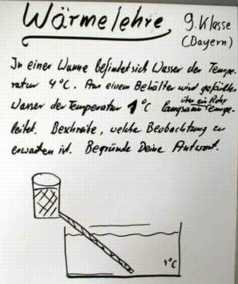 Wärmelehre 9. Klasse
(Bayern)
In einer Wanne befindet sich Wasser der Tempe-
ratur 4°C. Aus einem Behälter wird gefülltes
Wasser der Temperatur 1°C über ein Rohr langsam
leitet. Beschreibe, welche Beobachtung zu
erwarten ist. Begründe Deine Antwort.
4°C